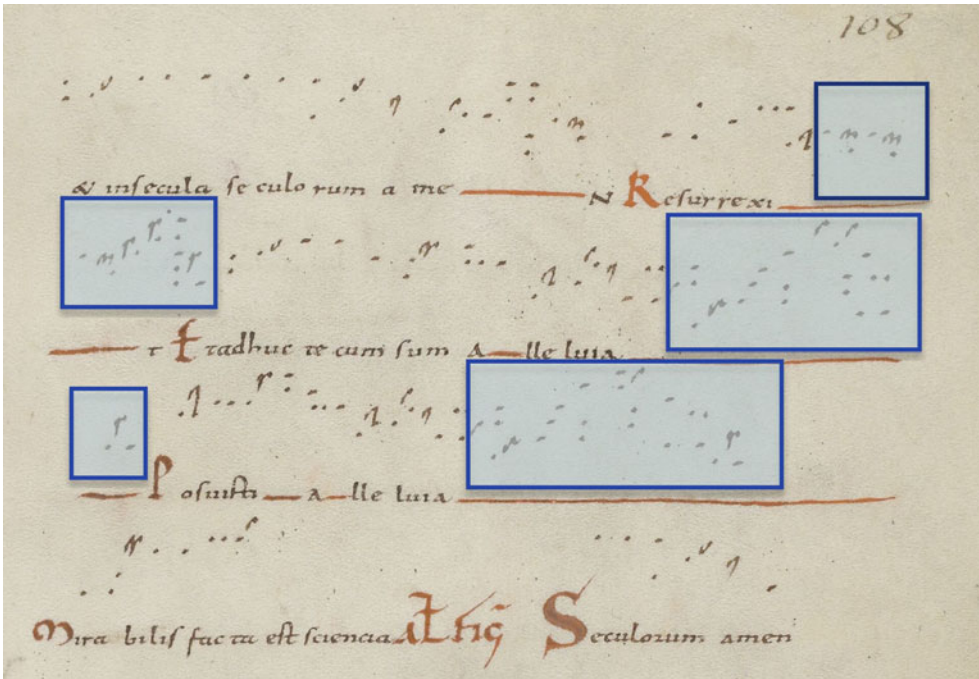 108
& insecula se culo rum a me N Resurrexi
t Et adhuc te cum sum A lle luia
Posuisti A lle luia
Mira bilis fac ta est sciencia Seculorum amen